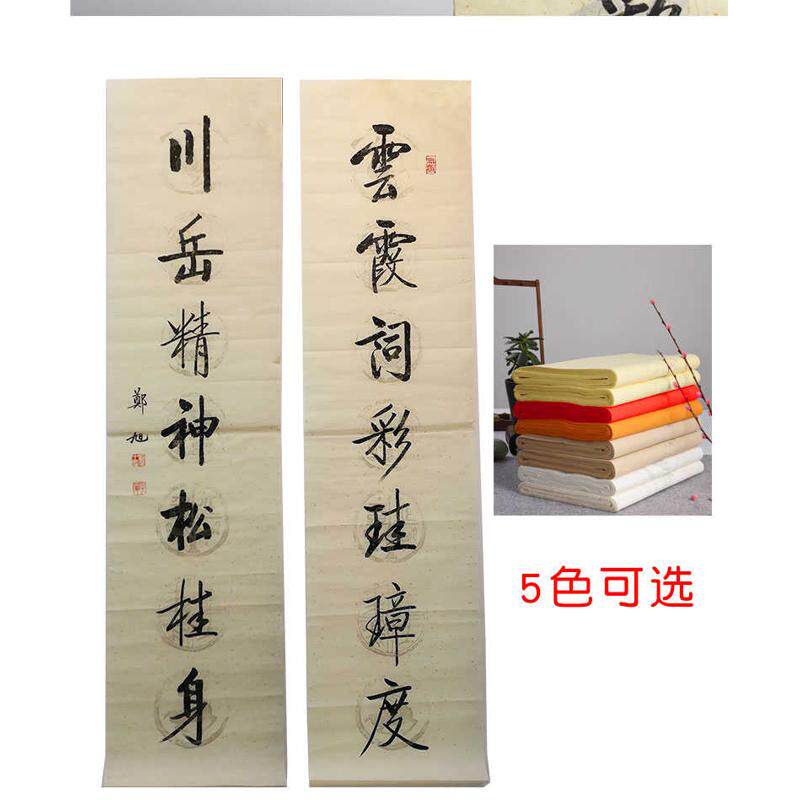 雲霞詞彩珪璋度
川岳精神松桂身
鄭旭
5色可选